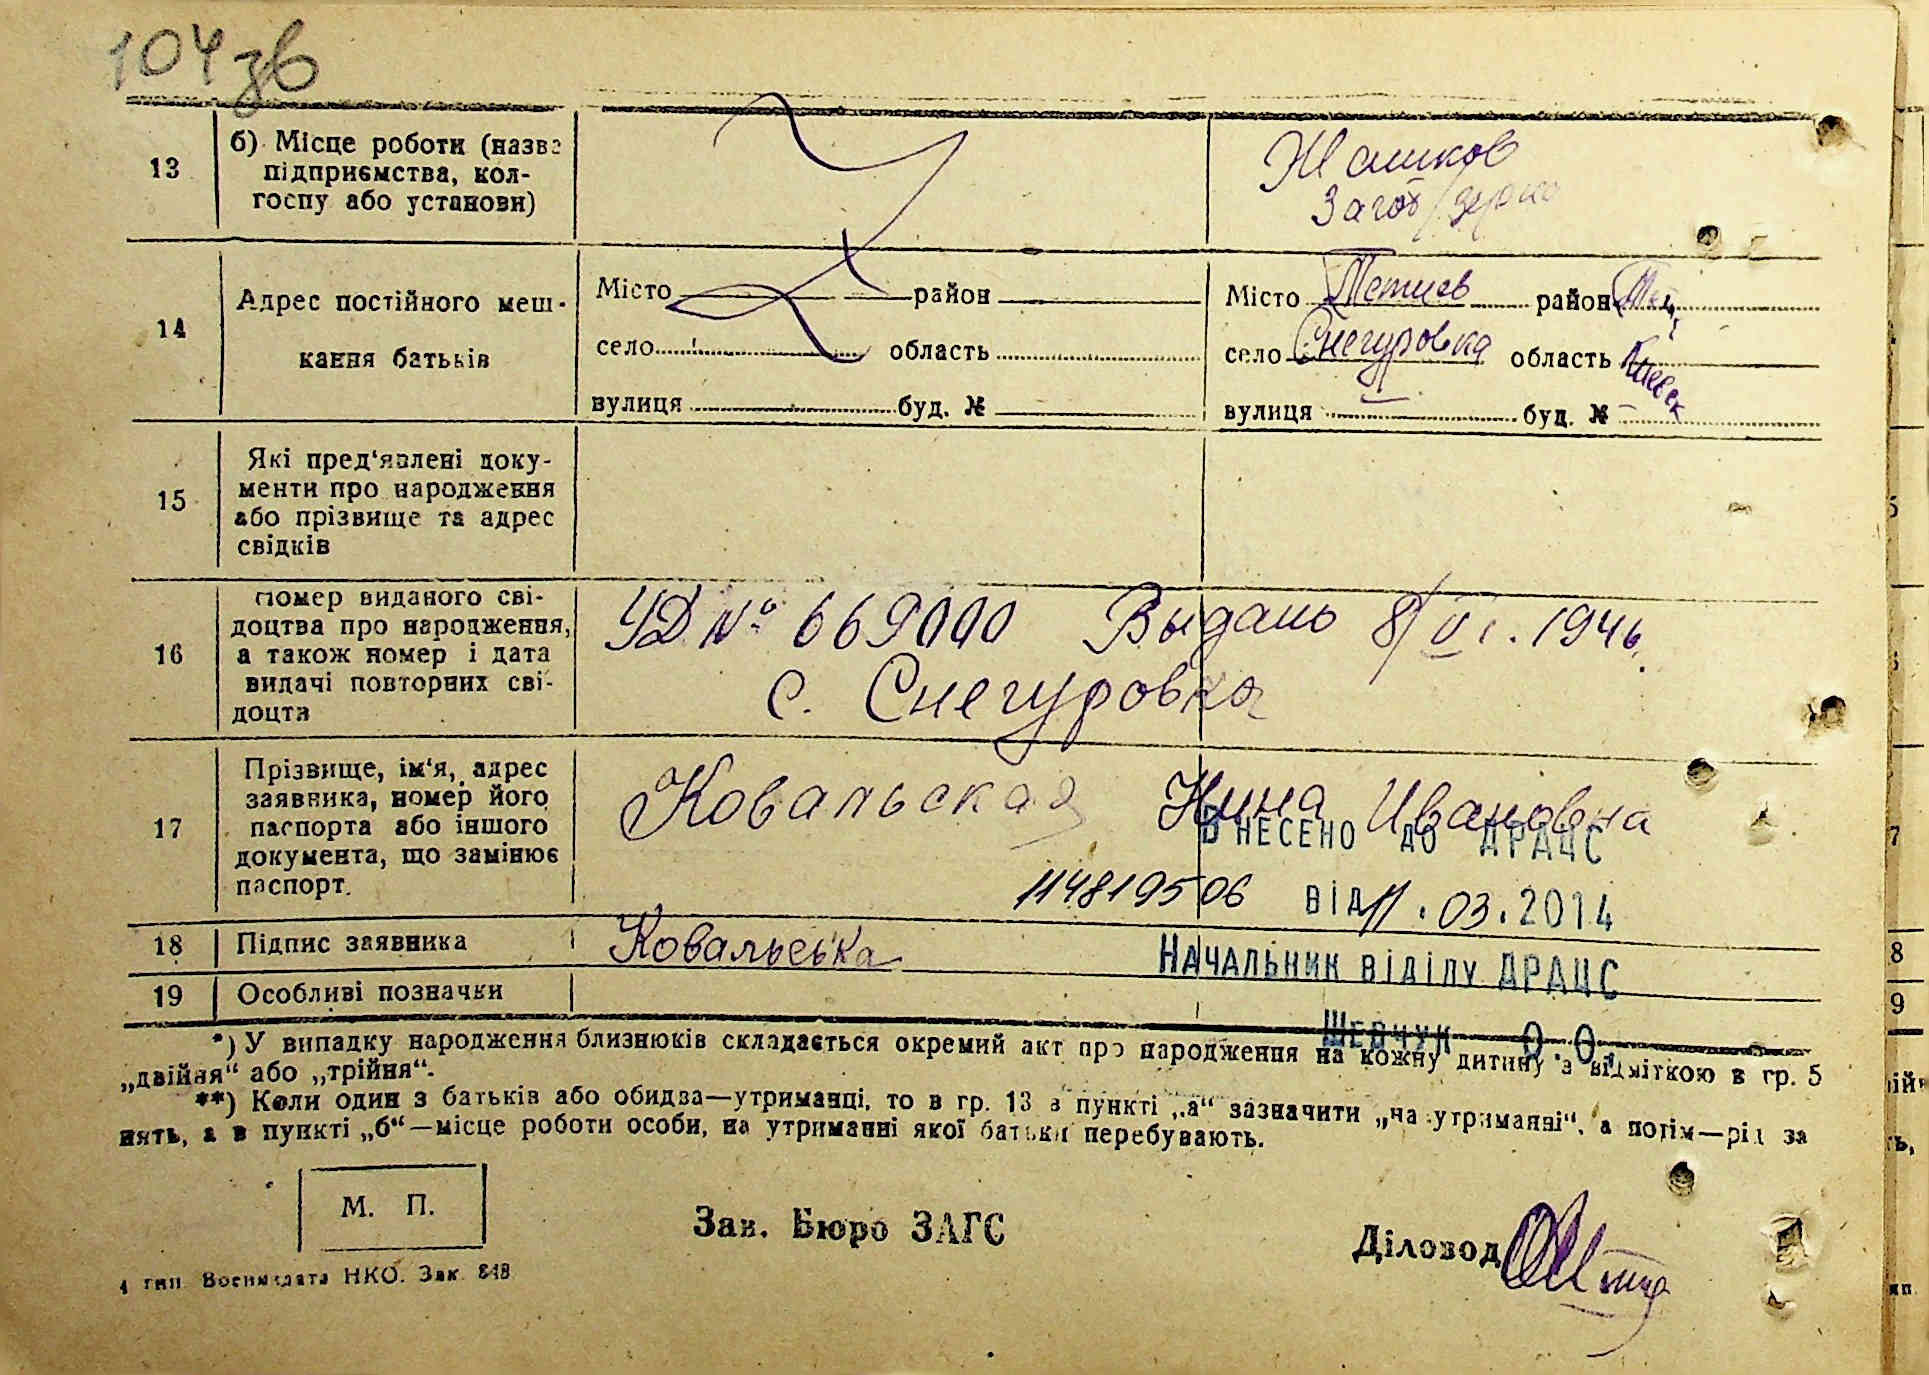 104 зв
13
б) Місце роботи (назва
підприємства, кол-
госпу або установи)
Жашков
Загот/зерно
14
Адрес постійного меш-
кання батьків
Місто район
село область
вулиця буд. №
Місто Тетиев район Тет.
село Снегуровка область Киевск
вулиця буд. №
15
Які пред'явлені доку-
менти про народження
або прізвище та адрес
свідків
16
Номер виданого сві-
доцтва про народження,
а також номер і дата
видачі повторних сві-
доцтв
УД № 669000 Выдано 8/VI. 1946.
с. Снегуровка
17
Прізвище, ім'я, адрес
заявника, номер його
паспорта або іншого
документа, що замінює
паспорт.
Ковальская Нина Ивановна
ВНЕСЕНО ДО ДРАЦС
1148195 06 від 11.03.2014
18 Підпис заявника Ковальська
НАЧАЛЬНИК ВІДІЛУ ДРАЦС
19 Особливі позначки
ШЕВЧУК О.О.
*) У випадку народження близнюків складається окремий акт про народження на кожну дитину з відміткою в гр. 5
„двійня“ або „трійня“.
**) Коли один з батьків або обидва—утриманці, то в гр. 13 в пункті „а“ зазначити „на утриманні“, а потім—рід за
нять, а в пункті „б“—місце роботи особи, на утриманні якої батьки перебувають.
М. П.
Зав. Бюро ЗАГС
Діловод
4 тип. Воениздата НКО. Зак. 848